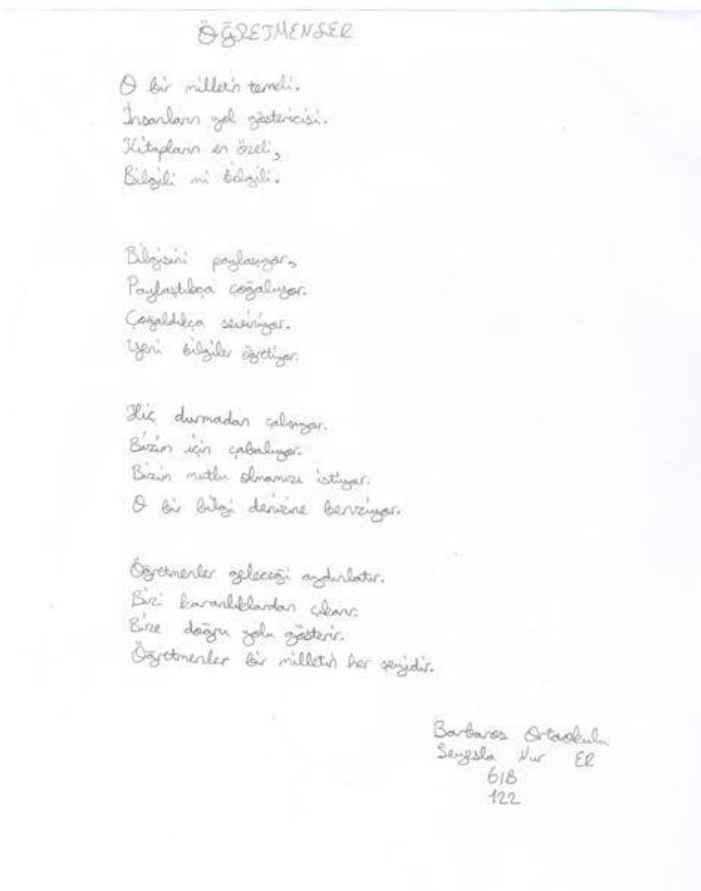 ÖĞRETMENLER
O bir milletin temeli.
İnsanların yol göstericisi.
Kitapların en özeli,
Bilgili mi bilgili.
Bilgisini paylaşıyor,
Paylaştıkça çoğalıyor.
Çoğaldıkça seviniyor.
Yeni bilgiler öğretiyor.
Hiç durmadan çalışıyor.
Bizim için çabalıyor.
Bizim mutlu olmamızı istiyor.
O bir bilgi denizine benziyor.
Öğretmenler geleceği aydınlatır.
Bizi karanlıklardan çıkarır.
Bize doğru yolu gösterir.
Öğretmenler bir milletin her şeyidir.
Barbaros Ortaokulu
Nur ER
6/B
122